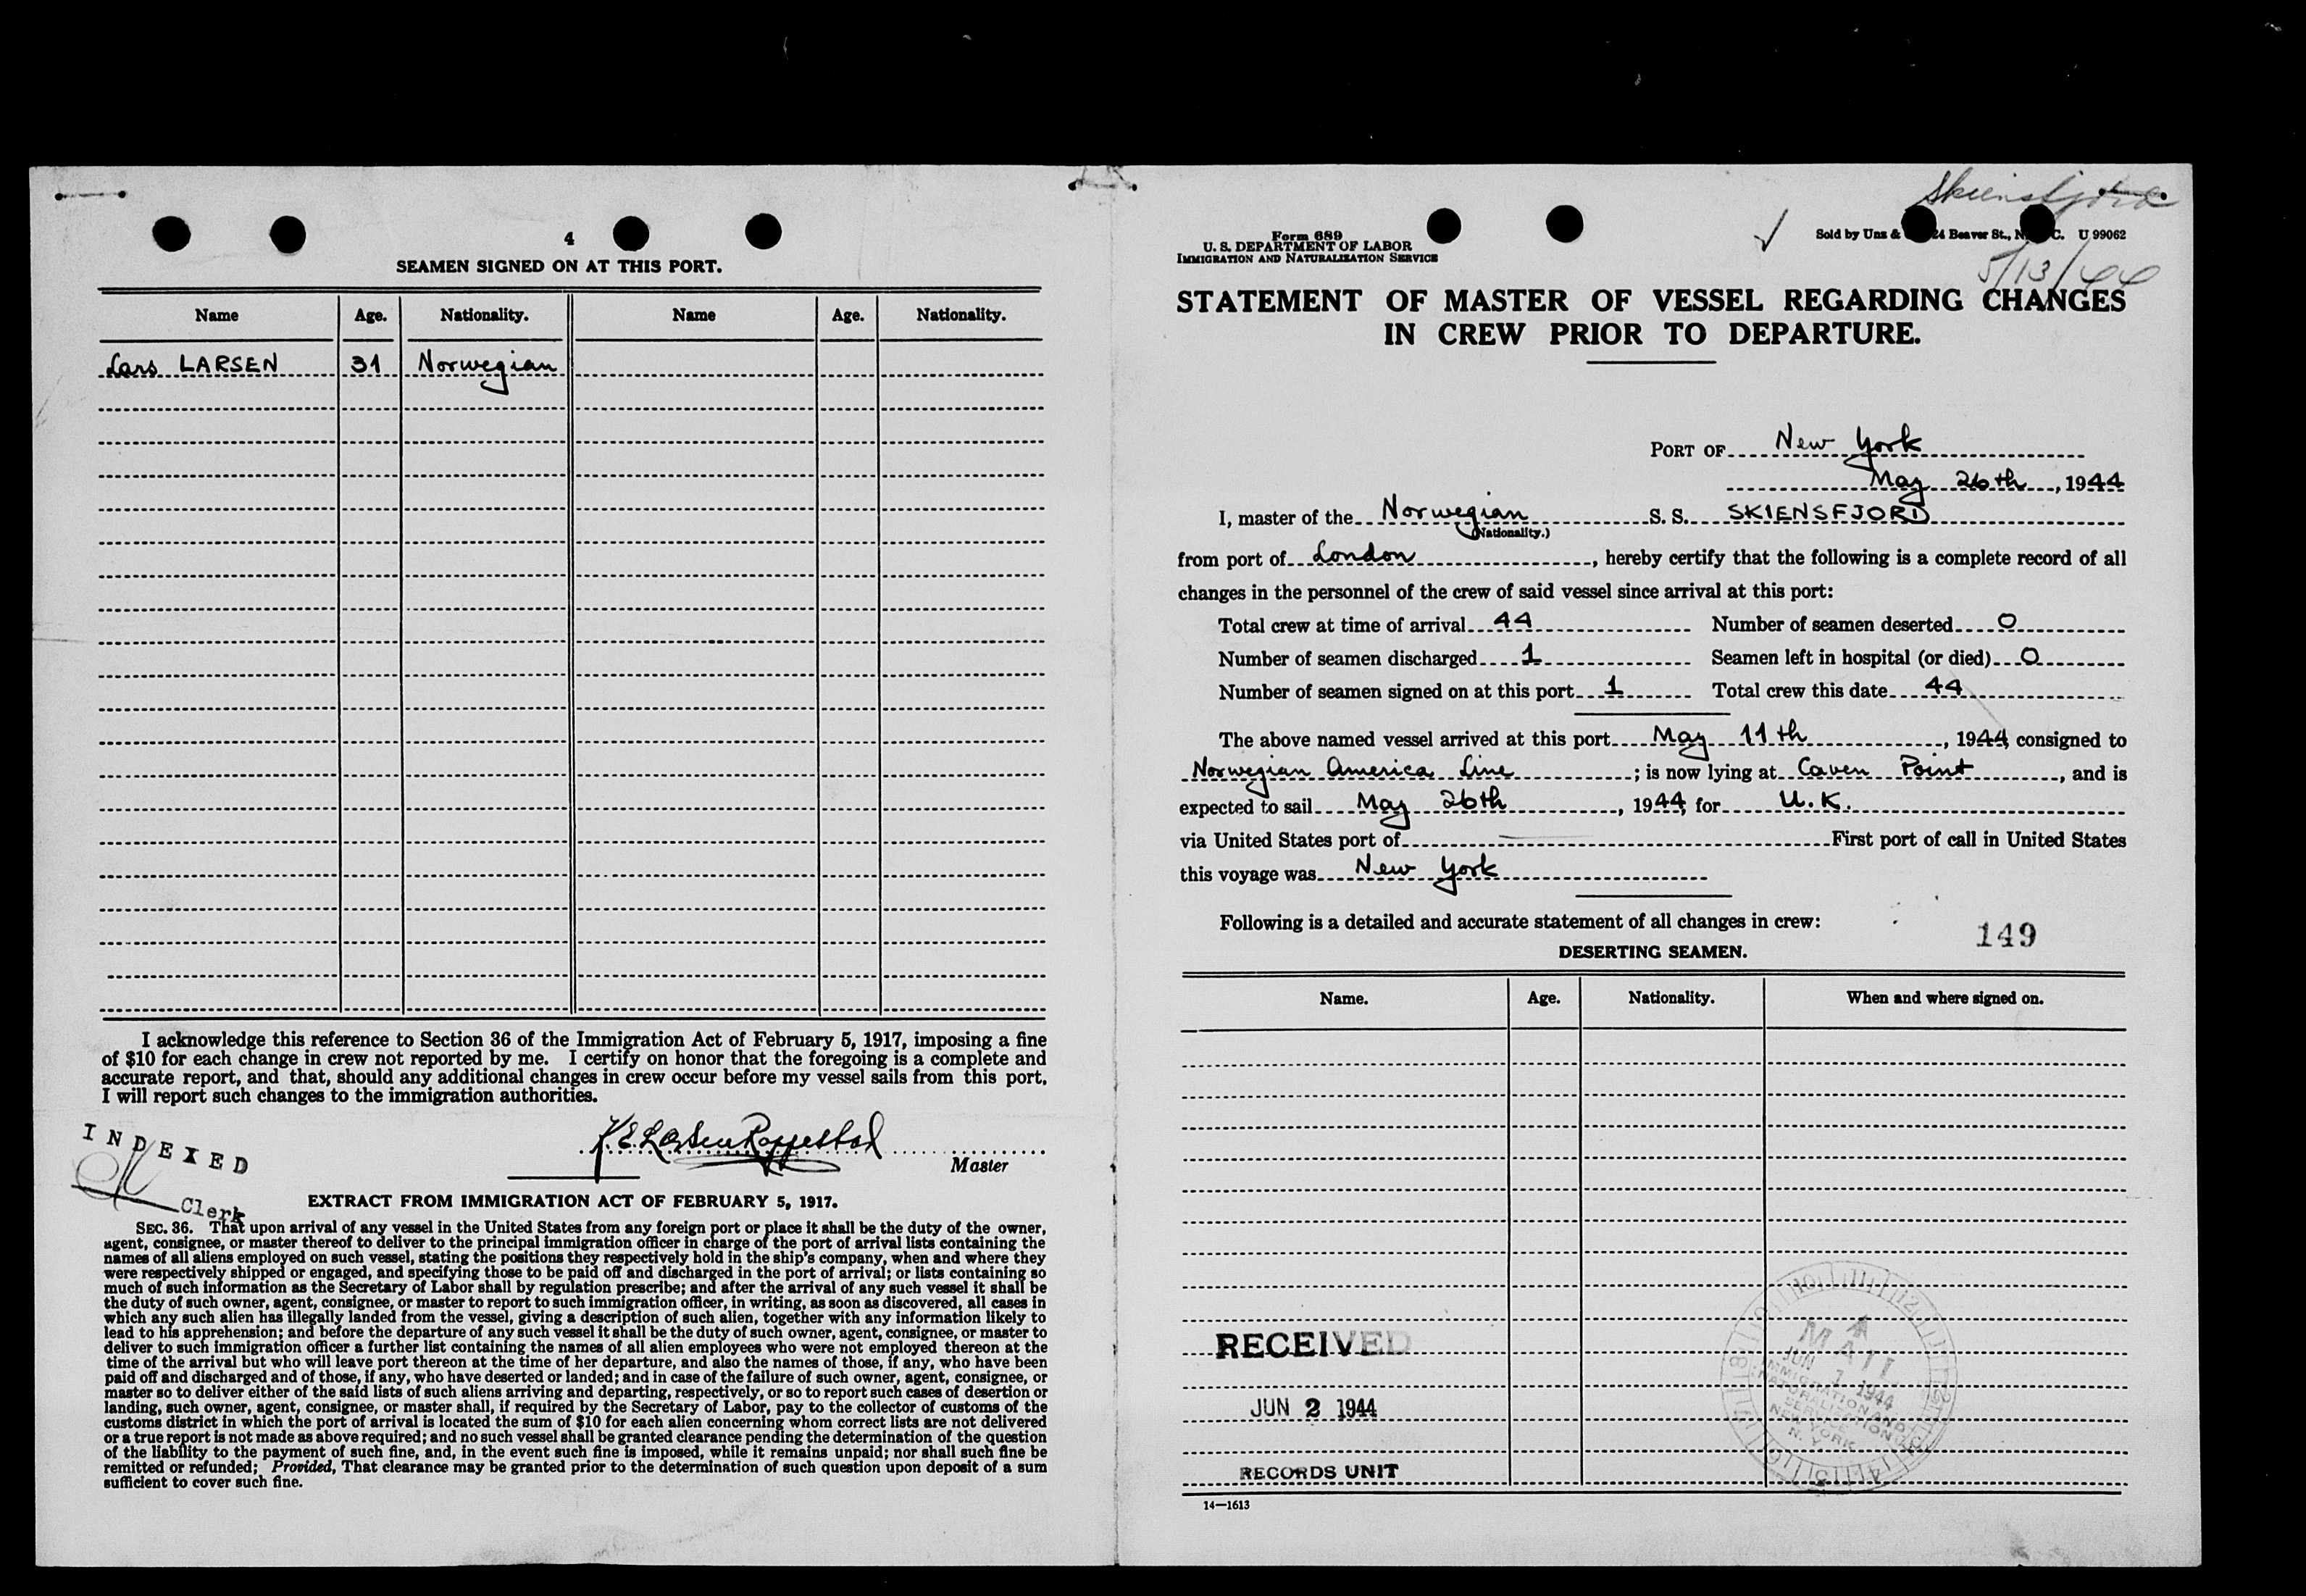 4
SEAMEN SIGNED ON AT THIS PORT.
Name Age. Nationality. Name Age. Nationality.
Lars LARSEN 31 Norwegian
I acknowledge this reference to Section 36 of the Immigration Act of February 5, 1917, imposing a fine
of $10 for each change in crew not reported by me. I certify on honor that the foregoing is a complete and
accurate report, and that, should any additional changes in crew occur before my vessel sails from this port,
I will report such changes to the immigration authorities.
INDEXED
Clerk
Master
EXTRACT FROM IMMIGRATION ACT OF FEBRUARY 5, 1917.
SEC. 36. That upon arrival of any vessel in the United States from any foreign port or place it shall be the duty of the owner,
agent, consignee, or master thereof to deliver to the principal immigration officer in charge of the port of arrival lists containing the
names of all aliens employed on such vessel, stating the positions they respectively hold in the ship's company, when and where they
were respectively shipped or engaged, and specifying those to be paid off and discharged in the port of arrival; or lists containing so
much of such information as the Secretary of Labor shall by regulation prescribe; and after the arrival of any such vessel it shall be
the duty of such owner, agent, consignee, or master to report to such immigration officer, in writing, as soon as discovered, all cases in
which any such alien has illegally landed from the vessel, giving a description of such alien, together with any information likely to
lead to his apprehension; and before the departure of any such vessel it shall be the duty of such owner, agent, consignee, or master to
deliver to such immigration officer a further list containing the names of all alien employees who were not employed thereon at the
time of the arrival but who will leave port thereon at the time of her departure, and also the names of those, if any, who have been
paid off and discharged and of those, if any, who have deserted or landed; and in case of the failure of such owner, agent, consignee, or
master so to deliver either of the said lists of such aliens arriving and departing, respectively, or so to report such cases of desertion or
landing, such owner, agent, consignee, or master shall, if required by the Secretary of Labor, pay to the collector of customs of the
customs district in which the port of arrival is located the sum of $10 for each alien concerning whom correct lists are not delivered
or a true report is not made as above required; and no such vessel shall be granted clearance pending the determination of the question
of the liability to the payment of such fine, and, in the event such fine is imposed, while it remains unpaid; nor shall such fine be
remitted or refunded; Provided, That clearance may be granted prior to the determination of such question upon deposit of a sum
sufficient to cover such fine.
Skiensfjord
Form 689
U. S. DEPARTMENT OF LABOR
IMMIGRATION AND NATURALIZATION SERVICE
Sold by Unz & 24 Beaver St., N. C. U 99062
5/13/44
STATEMENT OF MASTER OF VESSEL REGARDING CHANGES
IN CREW PRIOR TO DEPARTURE.
PORT OF New York
May 26th, 1944
I, master of the Norwegian S. S. SKIENSFJORD
(Nationality.)
from port of London, hereby certify that the following is a complete record of all
changes in the personnel of the crew of said vessel since arrival at this port:
Total crew at time of arrival 44 Number of seamen deserted 0
Number of seamen discharged 1 Seamen left in hospital (or died) 0
Number of seamen signed on at this port 1 Total crew this date 44
The above named vessel arrived at this port May 11th, 1944, consigned to
Norwegian America Line; is now lying at Caven Point, and is
expected to sail May 26th, 1944, for U.K.
via United States port of First port of call in United States
this voyage was New York
Following is a detailed and accurate statement of all changes in crew:
149
DESERTING SEAMEN.
Name. Age. Nationality. When and where signed on.
RECEIVED
JUN 2 1944
RECORDS UNIT
MAIL
JUN 1 1944
IMMIGRATION AND
NATURALIZATION
SERVICE
NEW YORK
N. Y.
14—1613